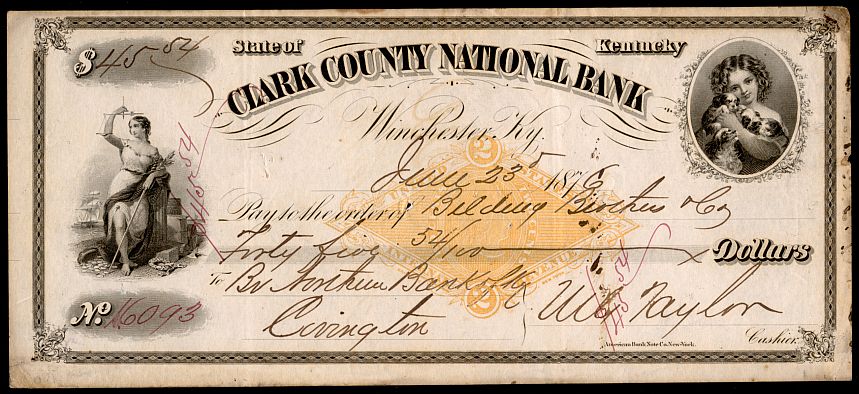 $ 45 54
State of Kentucky
CLARK COUNTY NATIONAL BANK
Winchester, Ky.
June 23d 1876
Pay to the order of Belding Brothers & Co
Forty five 54/100 Dollars
To Br Northern Bank of Ky
Covington
No. 16093
Taylor
Cashier.
American Bank Note Co. New-York.
$45 54
$45 54
2
2